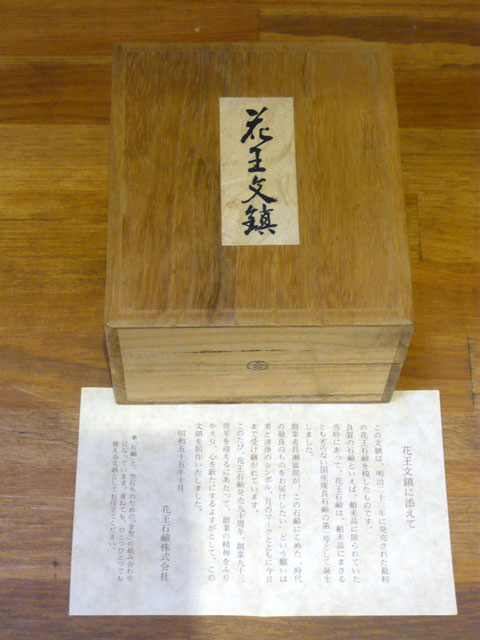 花王文鎮
花王文鎮に添えて
この文鎮は、明治二十三年に発売された最初
の花王石鹸を模したものです。
良質の石鹸といえば、舶来品に限られていた
当時にあって、花王石鹸は、舶来品にまさる
とも劣らない国産優良石鹸の第一号として誕生
しました。
創業者長瀬富郎が、この石鹸にこめた、「時代
の最良のものをお届けしたい」という願いは
美と清浄のシンボル、月のマークとともに今日
まで受け継がれています。
このたび、花王石鹸発売九十周年、創業九十三
周年を迎えるにあたって、創業の精神をふり
かえり、心を新たにするよすがとして、この
文鎮を制作いたしました。
昭和五十五年十月
花王石鹸株式会社
※「石鹸」と、型打ちのための「金型」の組み合わせ
になっています。重ねても、ひとつひとつでも
使える文鎮としてお役立てください。